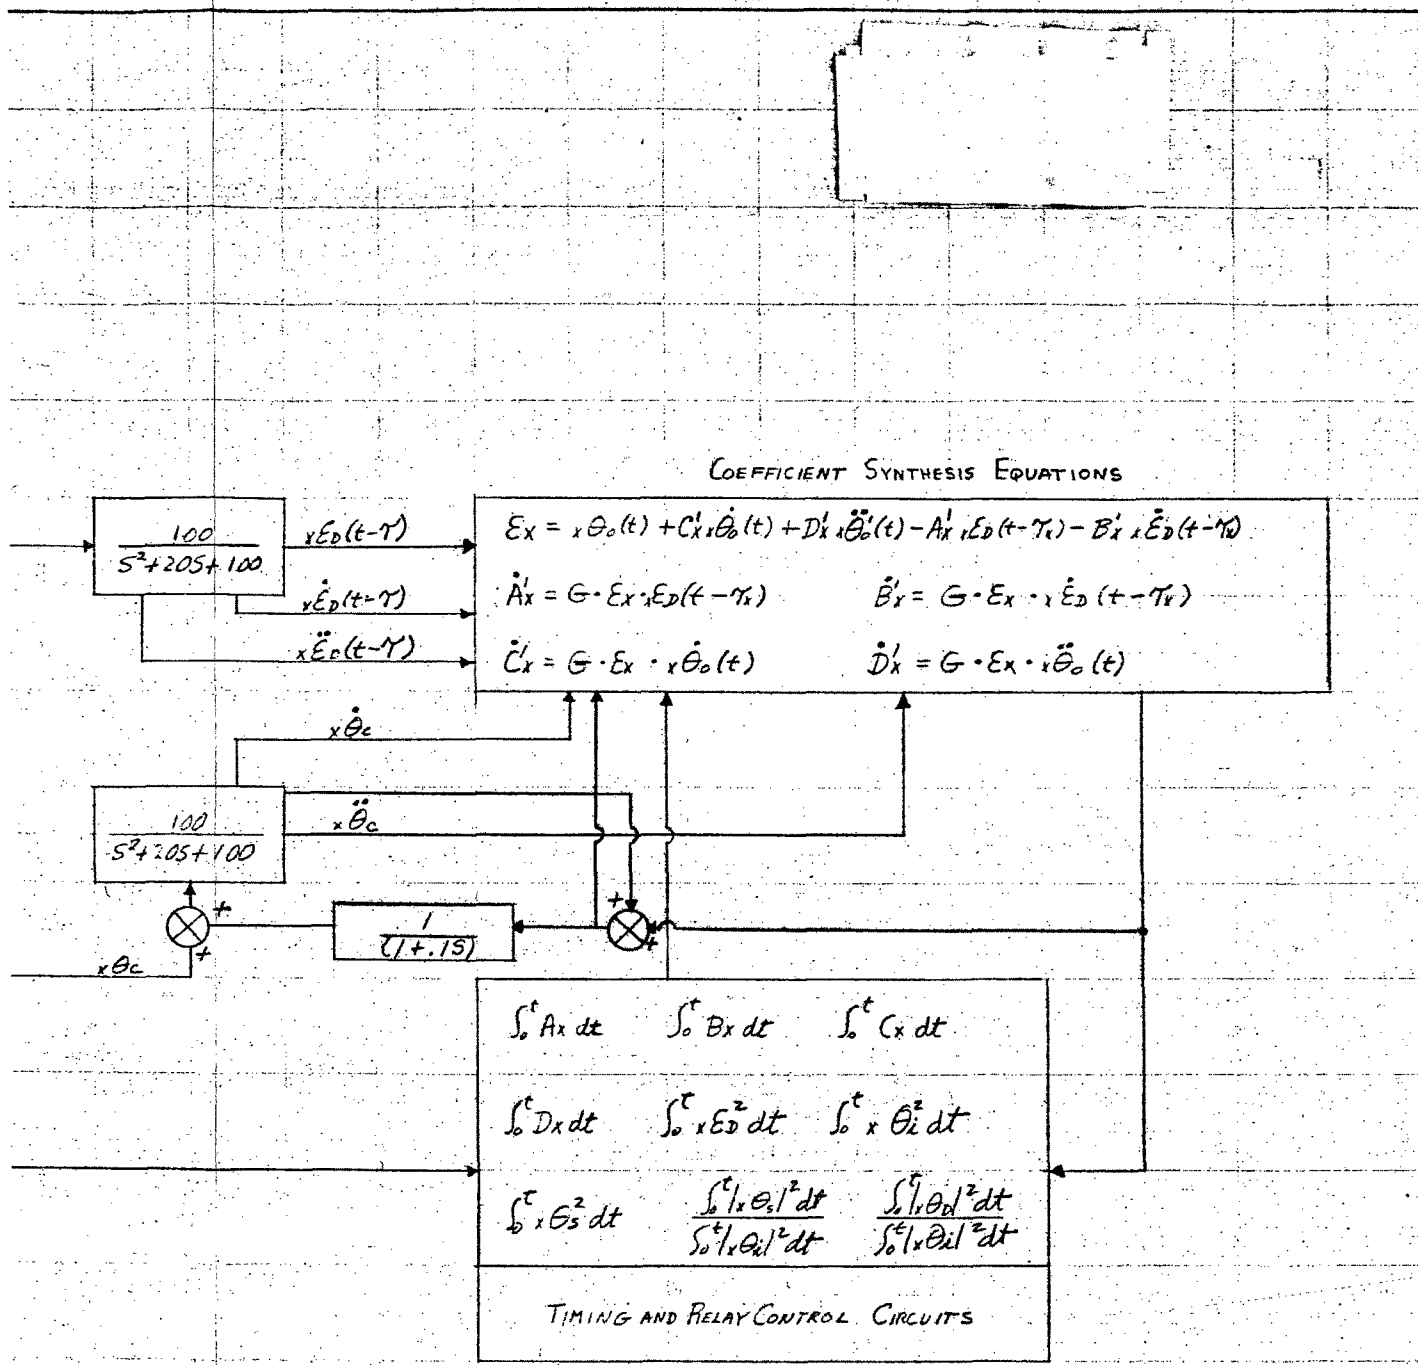 COEFFICIENT SYNTHESIS EQUATIONS
100 / S²+20S+100
ₓƐ_D(t-τ)
ₓƐ̇_D(t-τ)
ₓƐ̈_D(t-τ)
Ɛx = ₓθ₀(t) + C'x ₓθ̇₀(t) + D'x ₓθ̈₀'(t) - A'x ₓƐ_D(t-τx) - B'x ₓƐ̇_D(t-τx)
Ȧ'x = G·Ɛx·ₓƐ_D(t-τx)
Ḃ'x = G·Ɛx·ₓƐ̇_D(t-τx)
Ċ'x = G·Ɛx·ₓθ̇₀(t)
Ḋ'x = G·Ɛx·ₓθ̈₀(t)
ₓθ̇c
100 / S²+20S+100
ₓθ̈c
+
+
1 / (1+.1S)
+
+
ₓθc
∫₀ᵗ Ax dt ∫₀ᵗ Bx dt ∫₀ᵗ Cx dt
∫₀ᵗ Dx dt ∫₀ᵗ ₓƐ_D² dt ∫₀ᵗ ₓθi² dt
∫₀ᵗ ₓθs² dt ∫₀ᵗ|ₓθs|² dt / ∫₀ᵗ|ₓθi|² dt ∫₀ᵗ|ₓθ_D|² dt / ∫₀ᵗ|ₓθi|² dt
TIMING AND RELAY CONTROL CIRCUITS